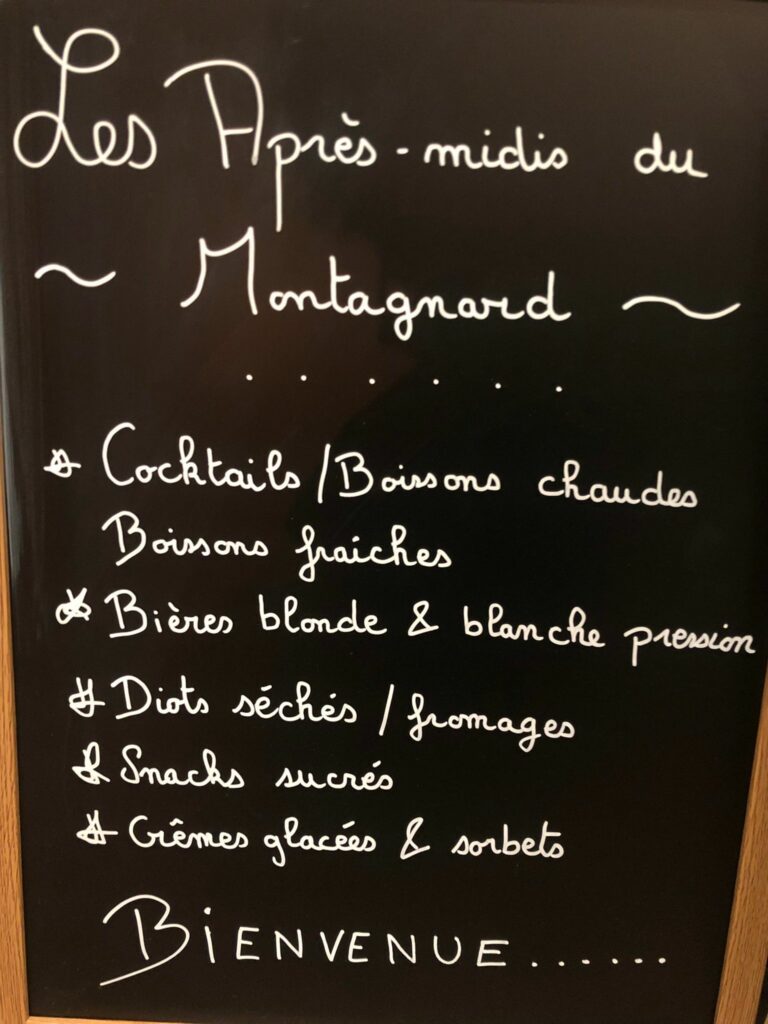 Les Après-midis du
~ Montagnard ~
. . . . . .
* Cocktails / Boissons chaudes
Boissons fraiches
* Bières blonde & blanche pression
* Diots séchés / fromages
* Snacks sucrés
* Crêmes glacées & sorbets
BiENVENUE......